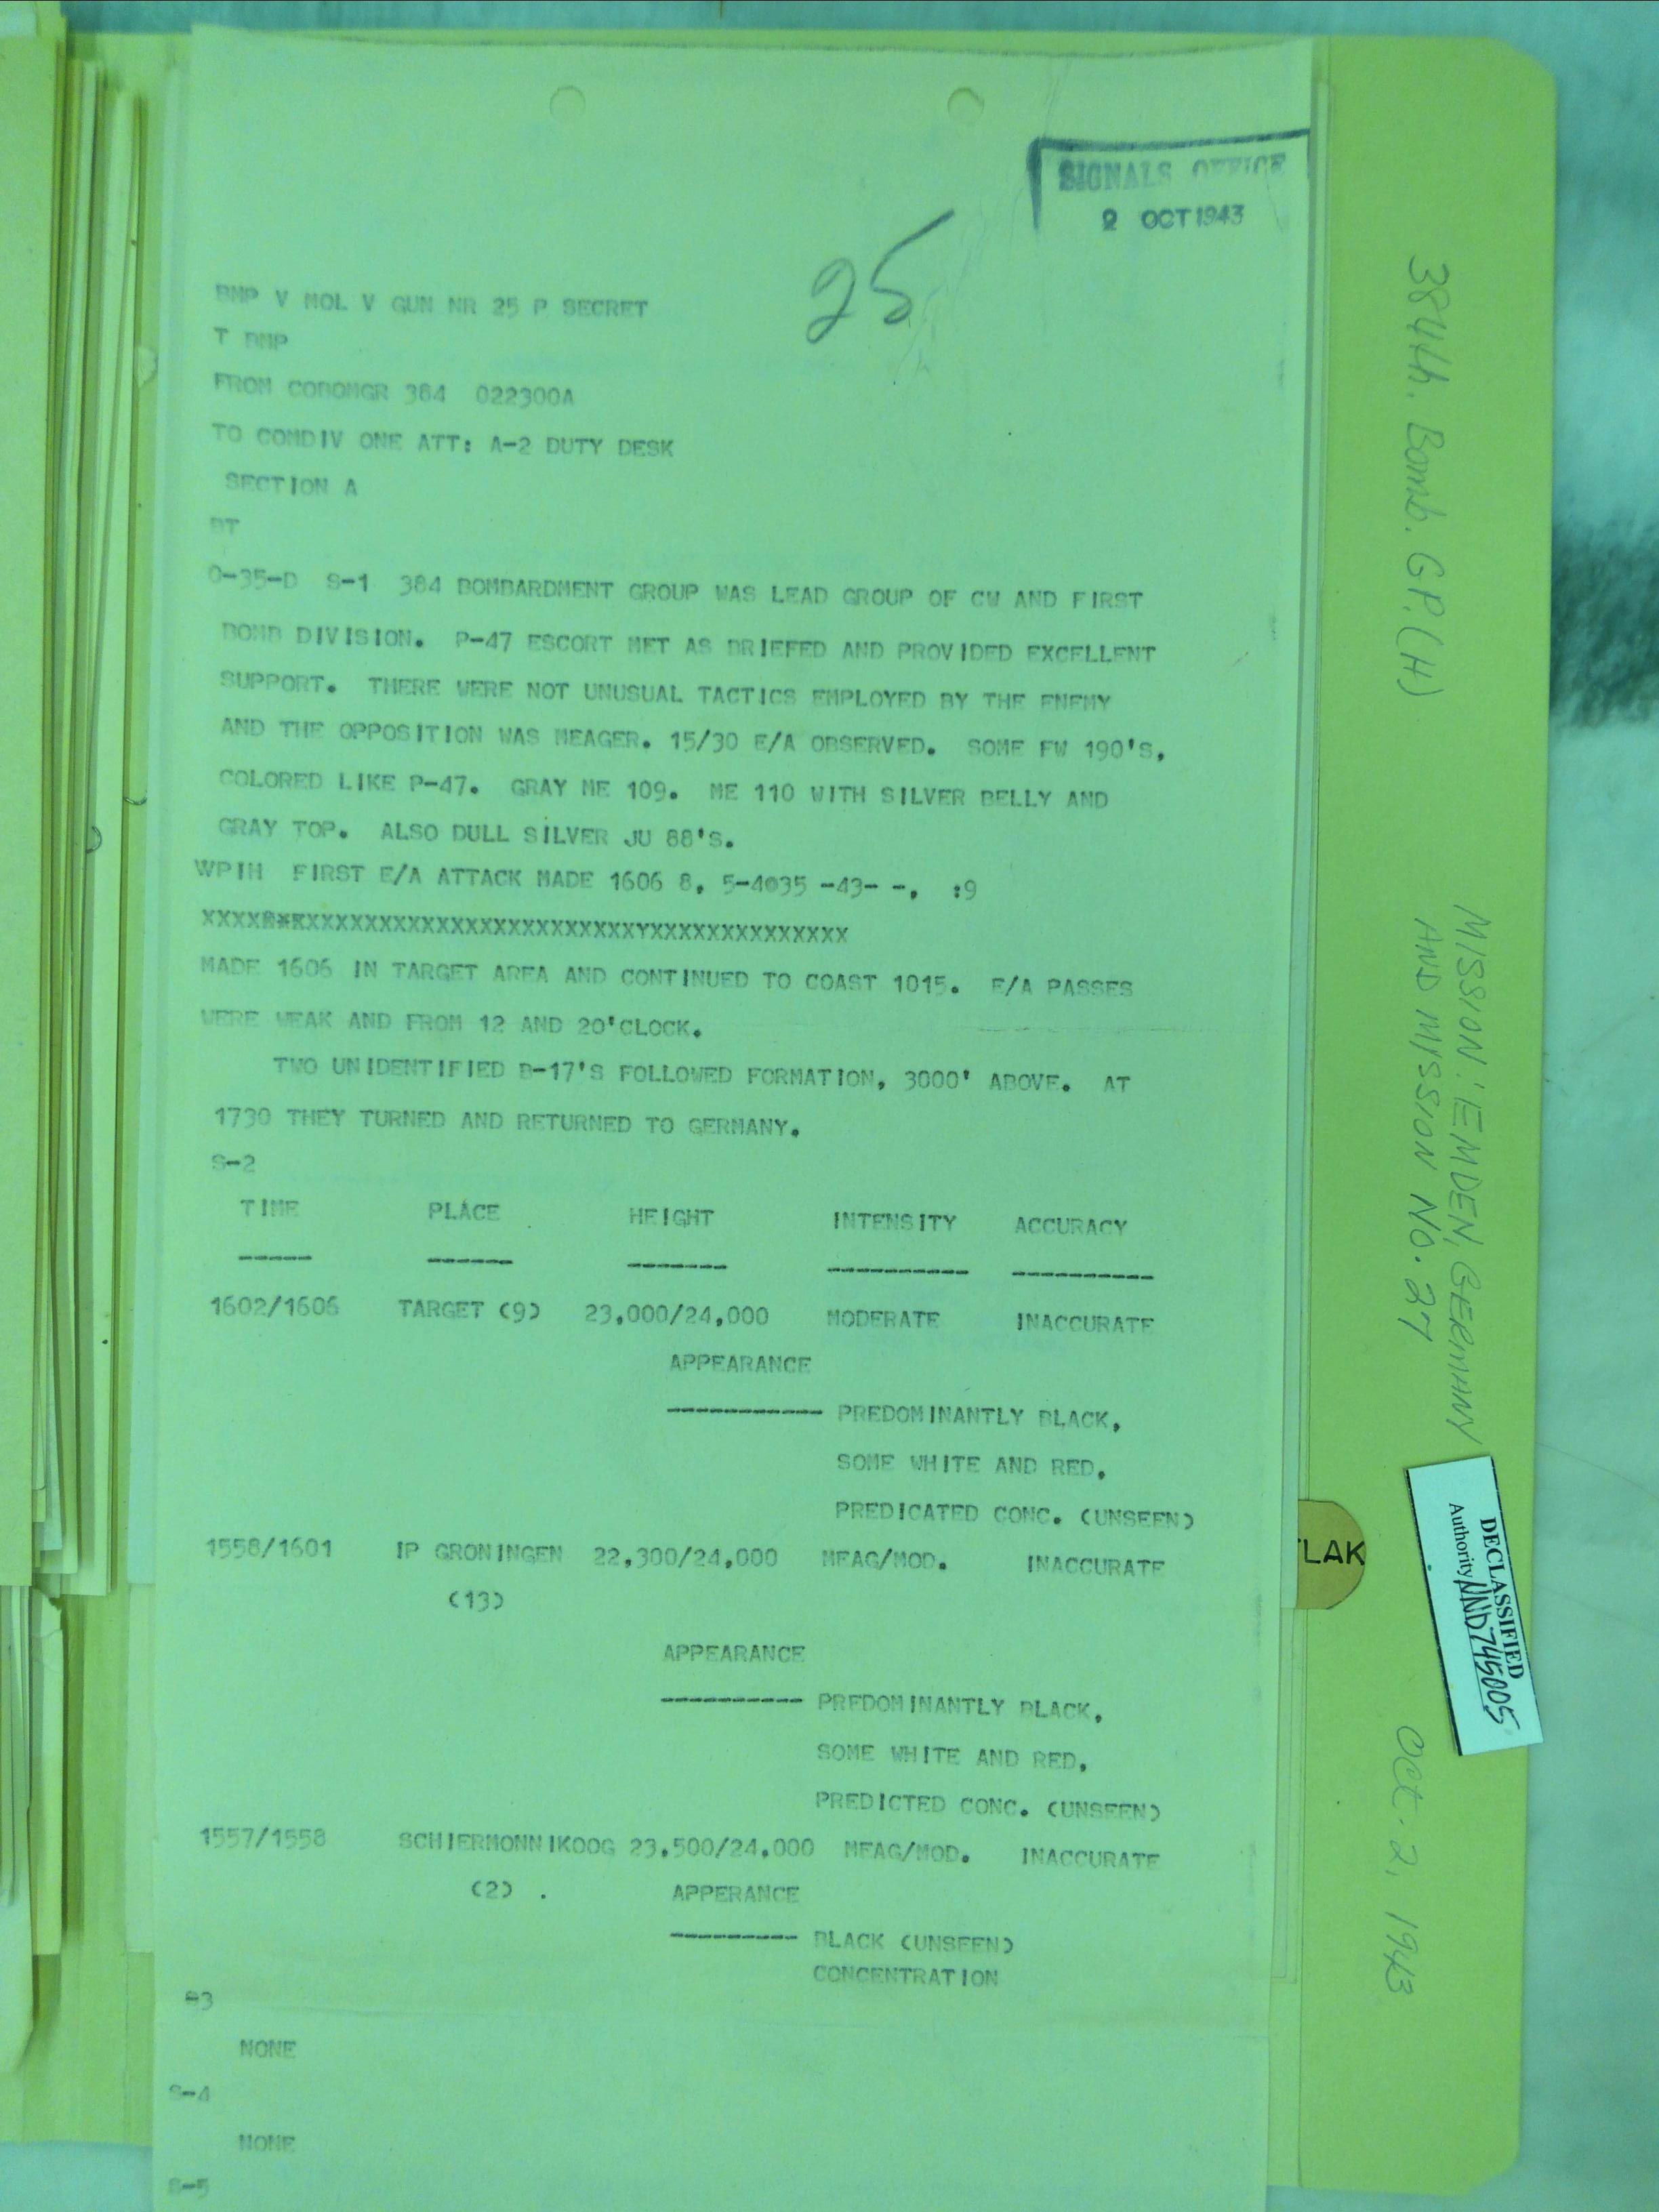 SIGNALS OFFICE
2 OCT 1943
25
BMP V MOL V GUN NR 25 P SECRET
T BMP
FROM COBOMGR 384 022300A
TO COMDIV ONE ATT: A-2 DUTY DESK
SECTION A
BT
O-35-D S-1 384 BOMBARDMENT GROUP WAS LEAD GROUP OF CW AND FIRST
BOMB DIVISION. P-47 ESCORT MET AS BRIEFED AND PROVIDED EXCELLENT
SUPPORT. THERE WERE NOT UNUSUAL TACTICS EMPLOYED BY THE ENEMY
AND THE OPPOSITION WAS MEAGER. 15/30 E/A OBSERVED. SOME FW 190'S,
COLORED LIKE P-47. GRAY ME 109. ME 110 WITH SILVER BELLY AND
GRAY TOP. ALSO DULL SILVER JU 88'S.
WPIH FIRST E/A ATTACK MADE 1606 8, 5-4035 -43- -, :9
MADE 1606 IN TARGET AREA AND CONTINUED TO COAST 1015. E/A PASSES
WERE WEAK AND FROM 12 AND 20'CLOCK.
TWO UNIDENTIFIED B-17'S FOLLOWED FORMATION, 3000' ABOVE. AT
1730 THEY TURNED AND RETURNED TO GERMANY.
S-2
TIME PLACE HEIGHT INTENSITY ACCURACY
----- ------ ------- ---------- ----------
1602/1606 TARGET (9) 23,000/24,000 MODERATE INACCURATE
APPEARANCE
----------- PREDOMINANTLY BLACK,
SOME WHITE AND RED,
PREDICATED CONC. (UNSEEN)
1558/1601 IP GRONINGEN 22,300/24,000 MEAG/MOD. INACCURATE
(13)
APPEARANCE
---------- PREDOMINANTLY BLACK,
SOME WHITE AND RED,
PREDICTED CONC. (UNSEEN)
1557/1558 SCHIERMONNIKOOG 23,500/24,000 MEAG/MOD. INACCURATE
(2) . APPERANCE
--------- BLACK (UNSEEN)
CONCENTRATION
S3
NONE
S-4
NONE
S-5
384th. Bomb. GP. (H)
MISSION: EMDEN, GERMANY
AND MISSION NO. 27
Oct. 2, 1943
DECLASSIFIED
Authority NND745005
FLAK